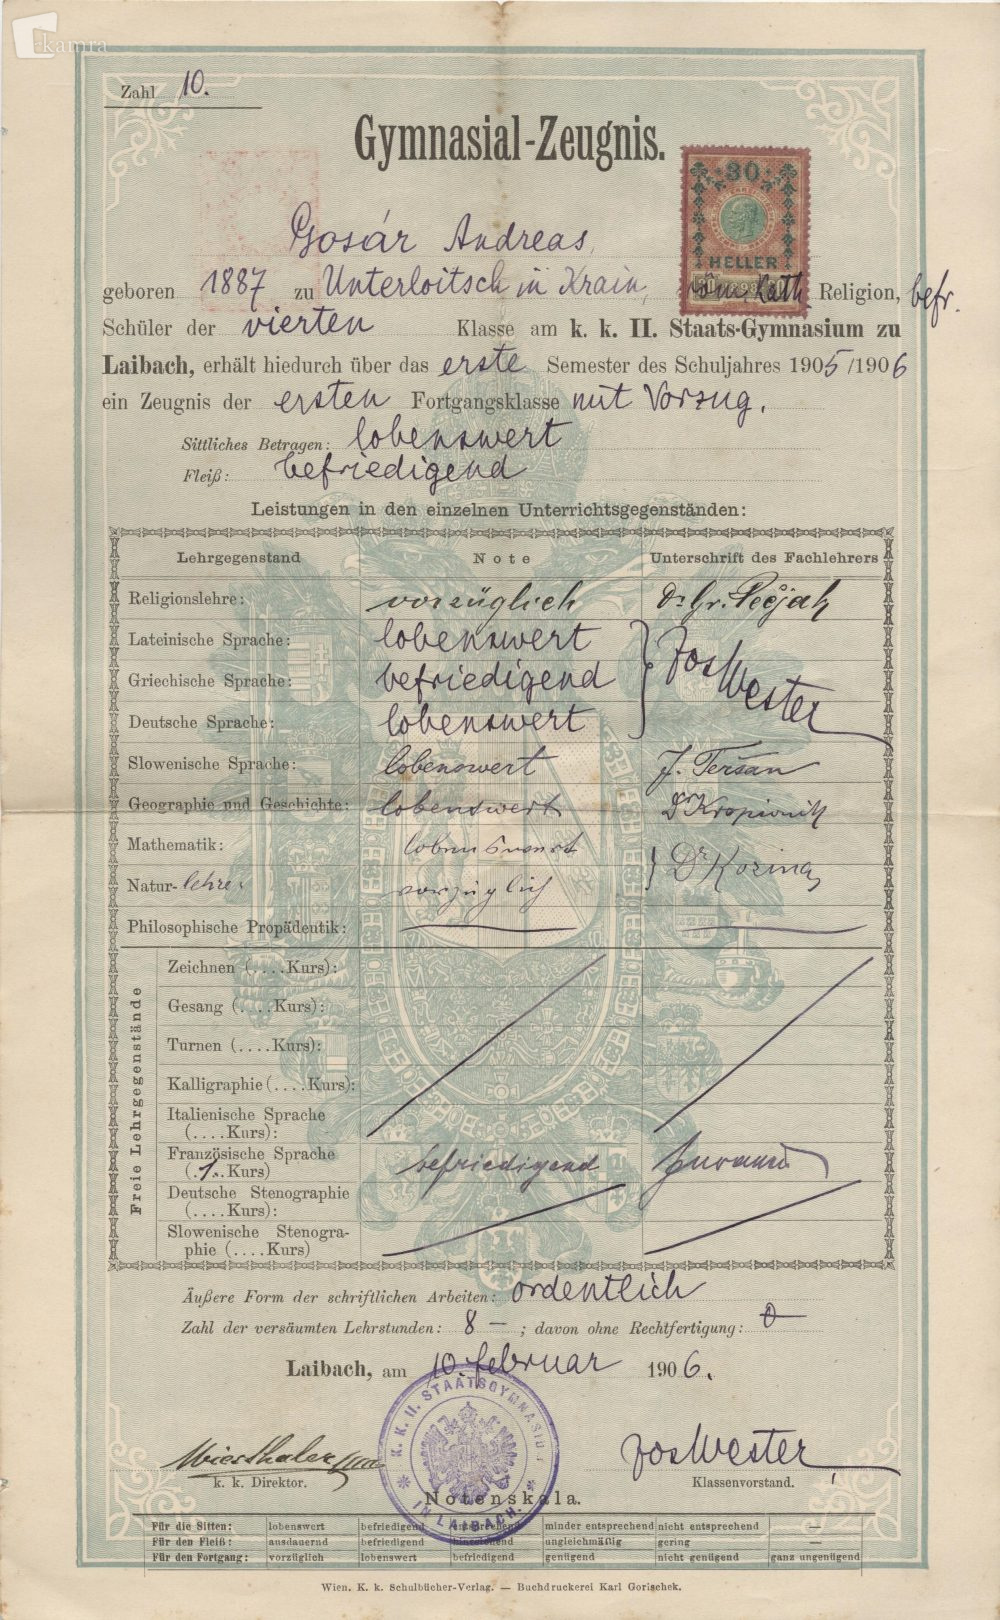 kamra
Zahl 10.
Gymnasial-Zeugnis.
30
HELLER
1898
Gosár Andreas,
geboren 1887 zu Unterloitsch in Krain, röm. kath. Religion, befr.
Schüler der vierten Klasse am k. k. II. Staats-Gymnasium zu
Laibach, erhält hiedurch über das erste Semester des Schuljahres 1905/1906
ein Zeugnis der ersten Fortgangsklasse mit Vorzug.
Sittliches Betragen: lobenswert
Fleiß: befriedigend
Leistungen in den einzelnen Unterrichtsgegenständen:
Lehrgegenstand Note Unterschrift des Fachlehrers
Religionslehre: vorzüglich Dr Gr. Pečjak
Lateinische Sprache: lobenswert
Griechische Sprache: befriedigend Jos Wester
Deutsche Sprache: lobenswert
Slowenische Sprache: lobenswert J. Teršan
Geographie und Geschichte: lobenswert Dr Kropivnik
Mathematik: lobenswert
Natur-lehre: vorzüglich Dr Kozina
Philosophische Propädeutik: —
Freie Lehrgegenstände
Zeichnen (....Kurs):
Gesang (....Kurs):
Turnen (....Kurs):
Kalligraphie (....Kurs):
Italienische Sprache
(....Kurs):
Französische Sprache
(.1..Kurs) befriedigend
Deutsche Stenographie
(....Kurs):
Slowenische Stenogra-
phie (....Kurs)
Äußere Form der schriftlichen Arbeiten: ordentlich
Zahl der versäumten Lehrstunden: 8 — ; davon ohne Rechtfertigung: 0
Laibach, am 10. februar 1906.
K. K. II. STAATSGYMNASIUM
IN LAIBACH.
Wiesthaler Jos Wester
k. k. Direktor. Klassenvorstand.
Notenskala.
Für die Sitten: lobenswert befriedigend entsprechend minder entsprechend nicht entsprechend —
Für den Fleiß: ausdauernd befriedigend hinreichend ungleichmäßig gering —
Für den Fortgang: vorzüglich lobenswert befriedigend genügend nicht genügend ganz ungenügend
Wien. K. k. Schulbücher-Verlag. — Buchdruckerei Karl Gorischek.